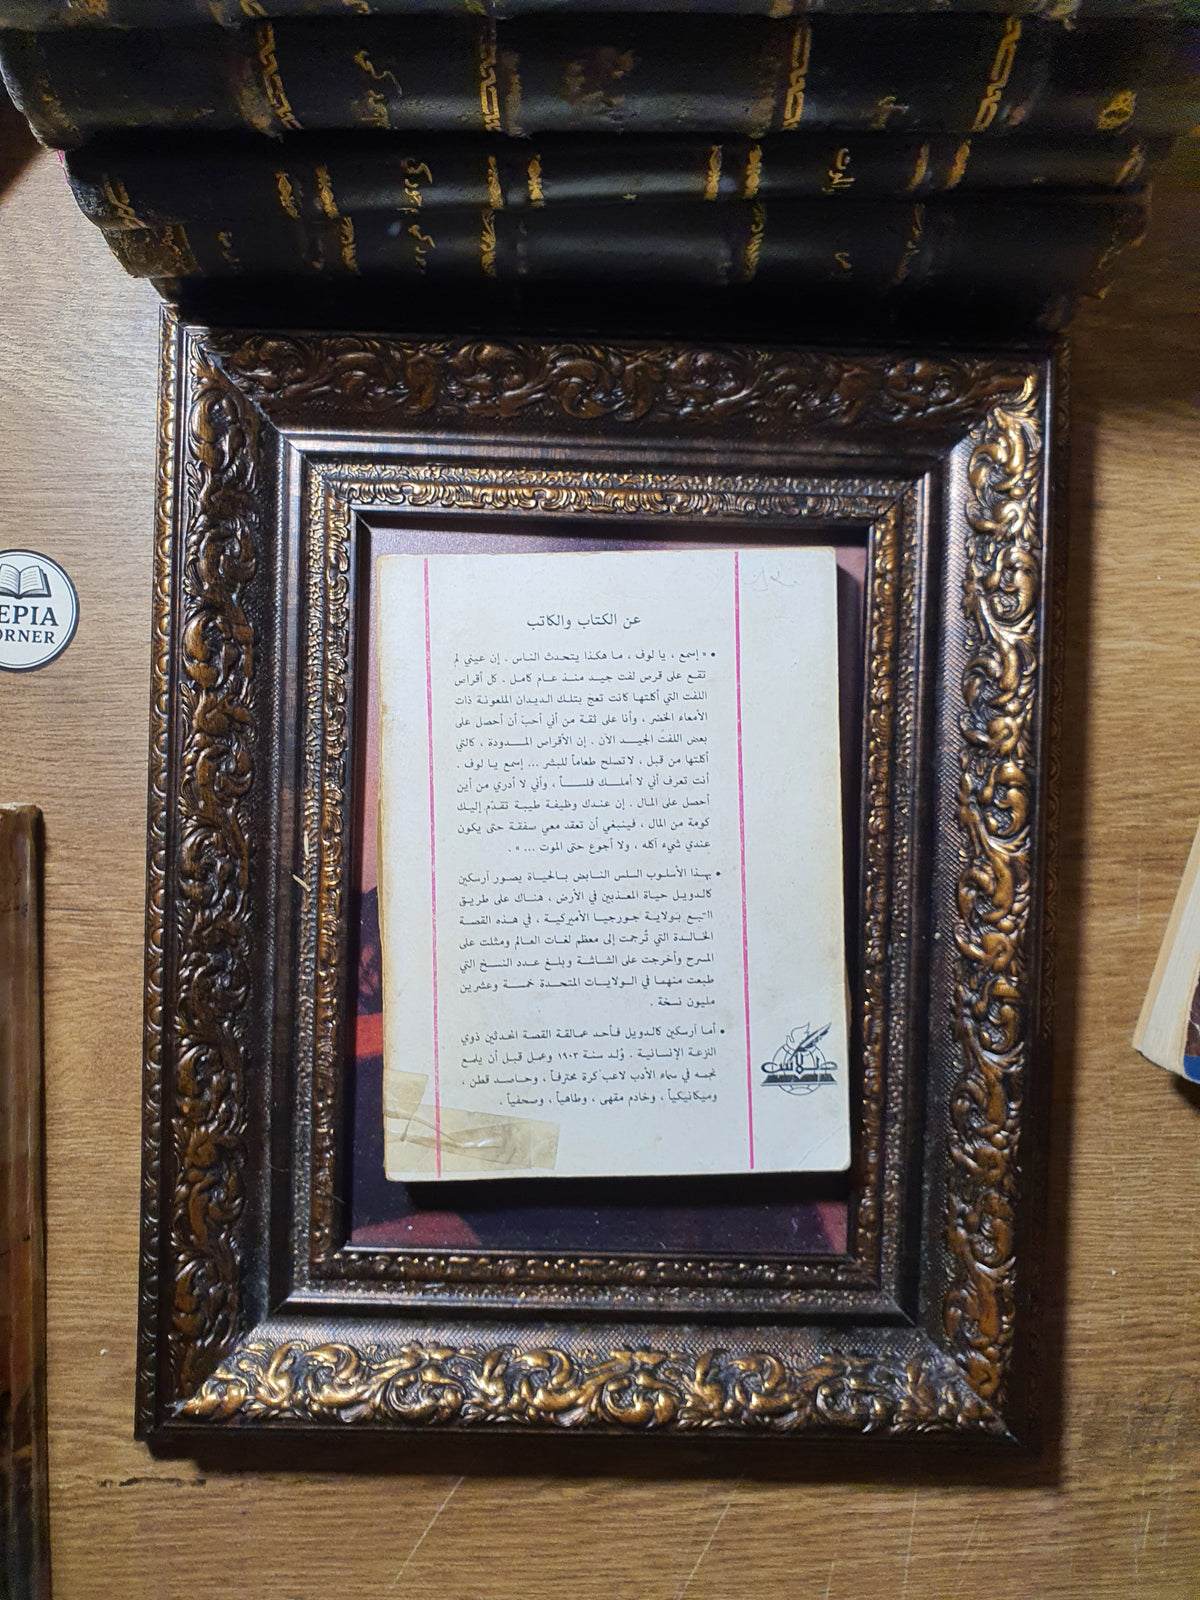 عن الكتاب والكاتب
• « إسمع ، يا لوف ، ما هكذا يتحدث الناس . إن عيني لم
تقع على قرص لفت جيد منذ عام كامل . كل أقراص
اللفت التي أكلتها كانت تعج بتلك الديدان الملعونة ذات
الأمعاء الخضر ، وأنا على ثقة من أني أحب أن أحصل على
بعض اللفت الجيد الآن . إن الأقراص المدودة ، كالتي
أكلتها من قبل ، لا تصلح طعاماً للبشر ... إسمع يا لوف .
أنت تعرف أني لا أملك فلساً ، وأني لا أدري من أين
أحصل على المال . إن عندك وظيفة طيبة تقدّم إليك
كومة من المال ، فينبغي أن تعقد معي صفقة حتى يكون
عندي شيء آكله ، ولا أجوع حتى الموت ... » .
• بهذا الأسلوب السلس النابض بالحياة يصور أرسكين
كالدويل حياة المعذبين في الأرض ، هناك على طريق
التبغ بولاية جورجيا الأميركية ، في هذه القصة
الخالدة التي تُرجمت إلى معظم لغات العالم ومثلت على
المسرح وأخرجت على الشاشة وبلغ عدد النسخ التي
طبعت منها في الولايات المتحدة خمسة وعشرين
مليون نسخة .
• أما أرسكين كالدويل فأحد عمالقة القصة المحدثين ذوي
النزعة الإنسانية . وُلد سنة ١٩٠٣ وعمل قبل أن يلمع
نجمه في سماء الأدب لاعب كرة محترفاً ، وحاصد قطن ،
وميكانيكياً ، وخادم مقهى ، وطاهياً ، وصحفياً .
EPIA
ORNER